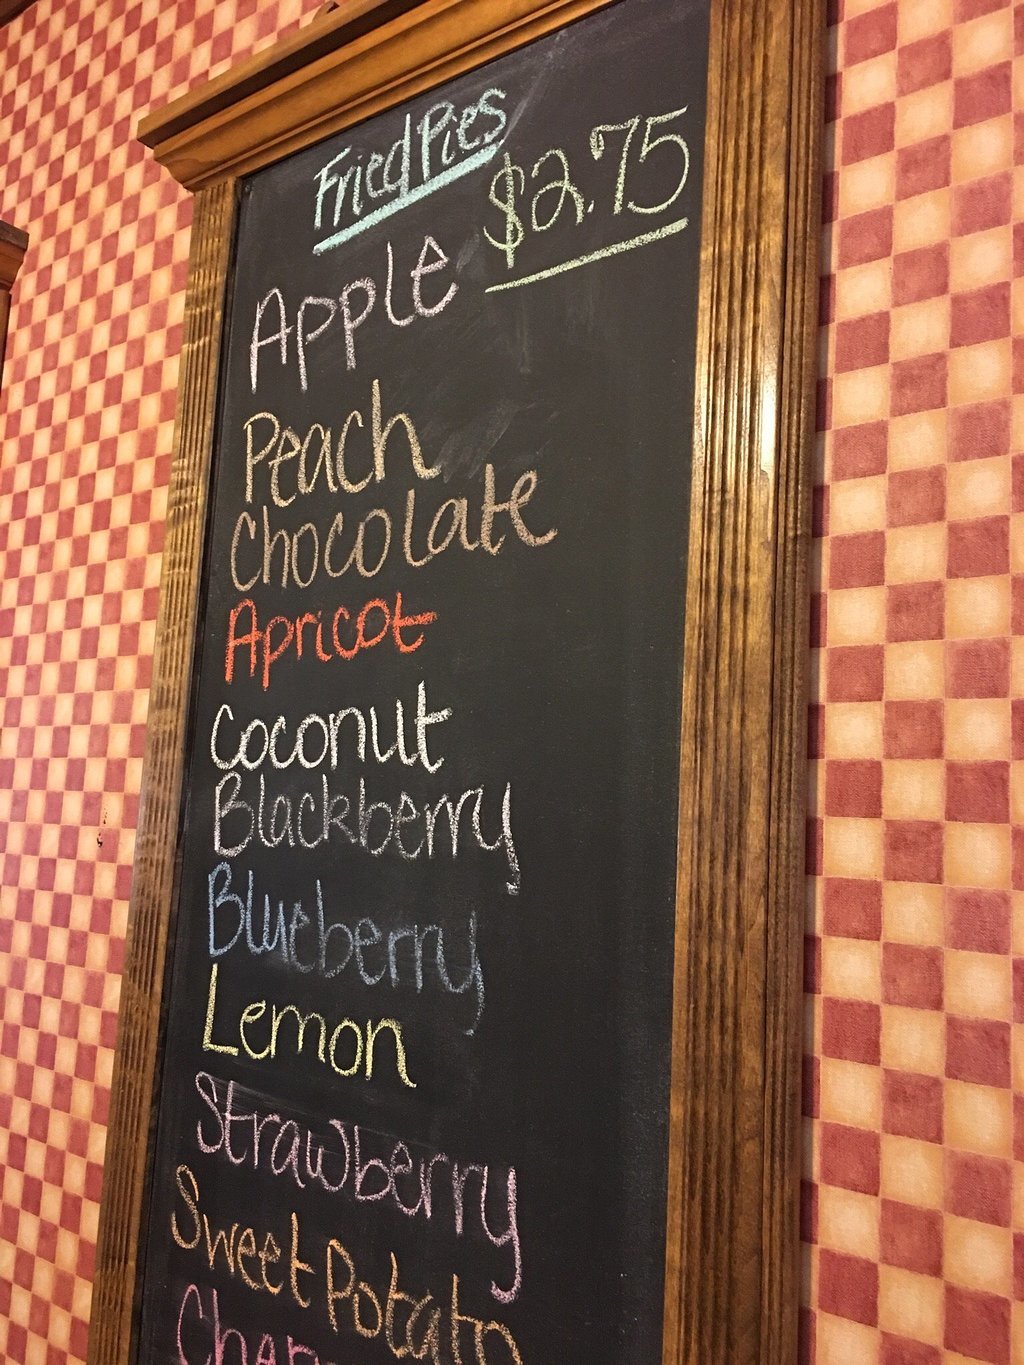 Fried Pies
$2.75
Apple
Peach
Chocolate
Apricot
Coconut
Blackberry
Blueberry
Lemon
Strawberry
Sweet Potato